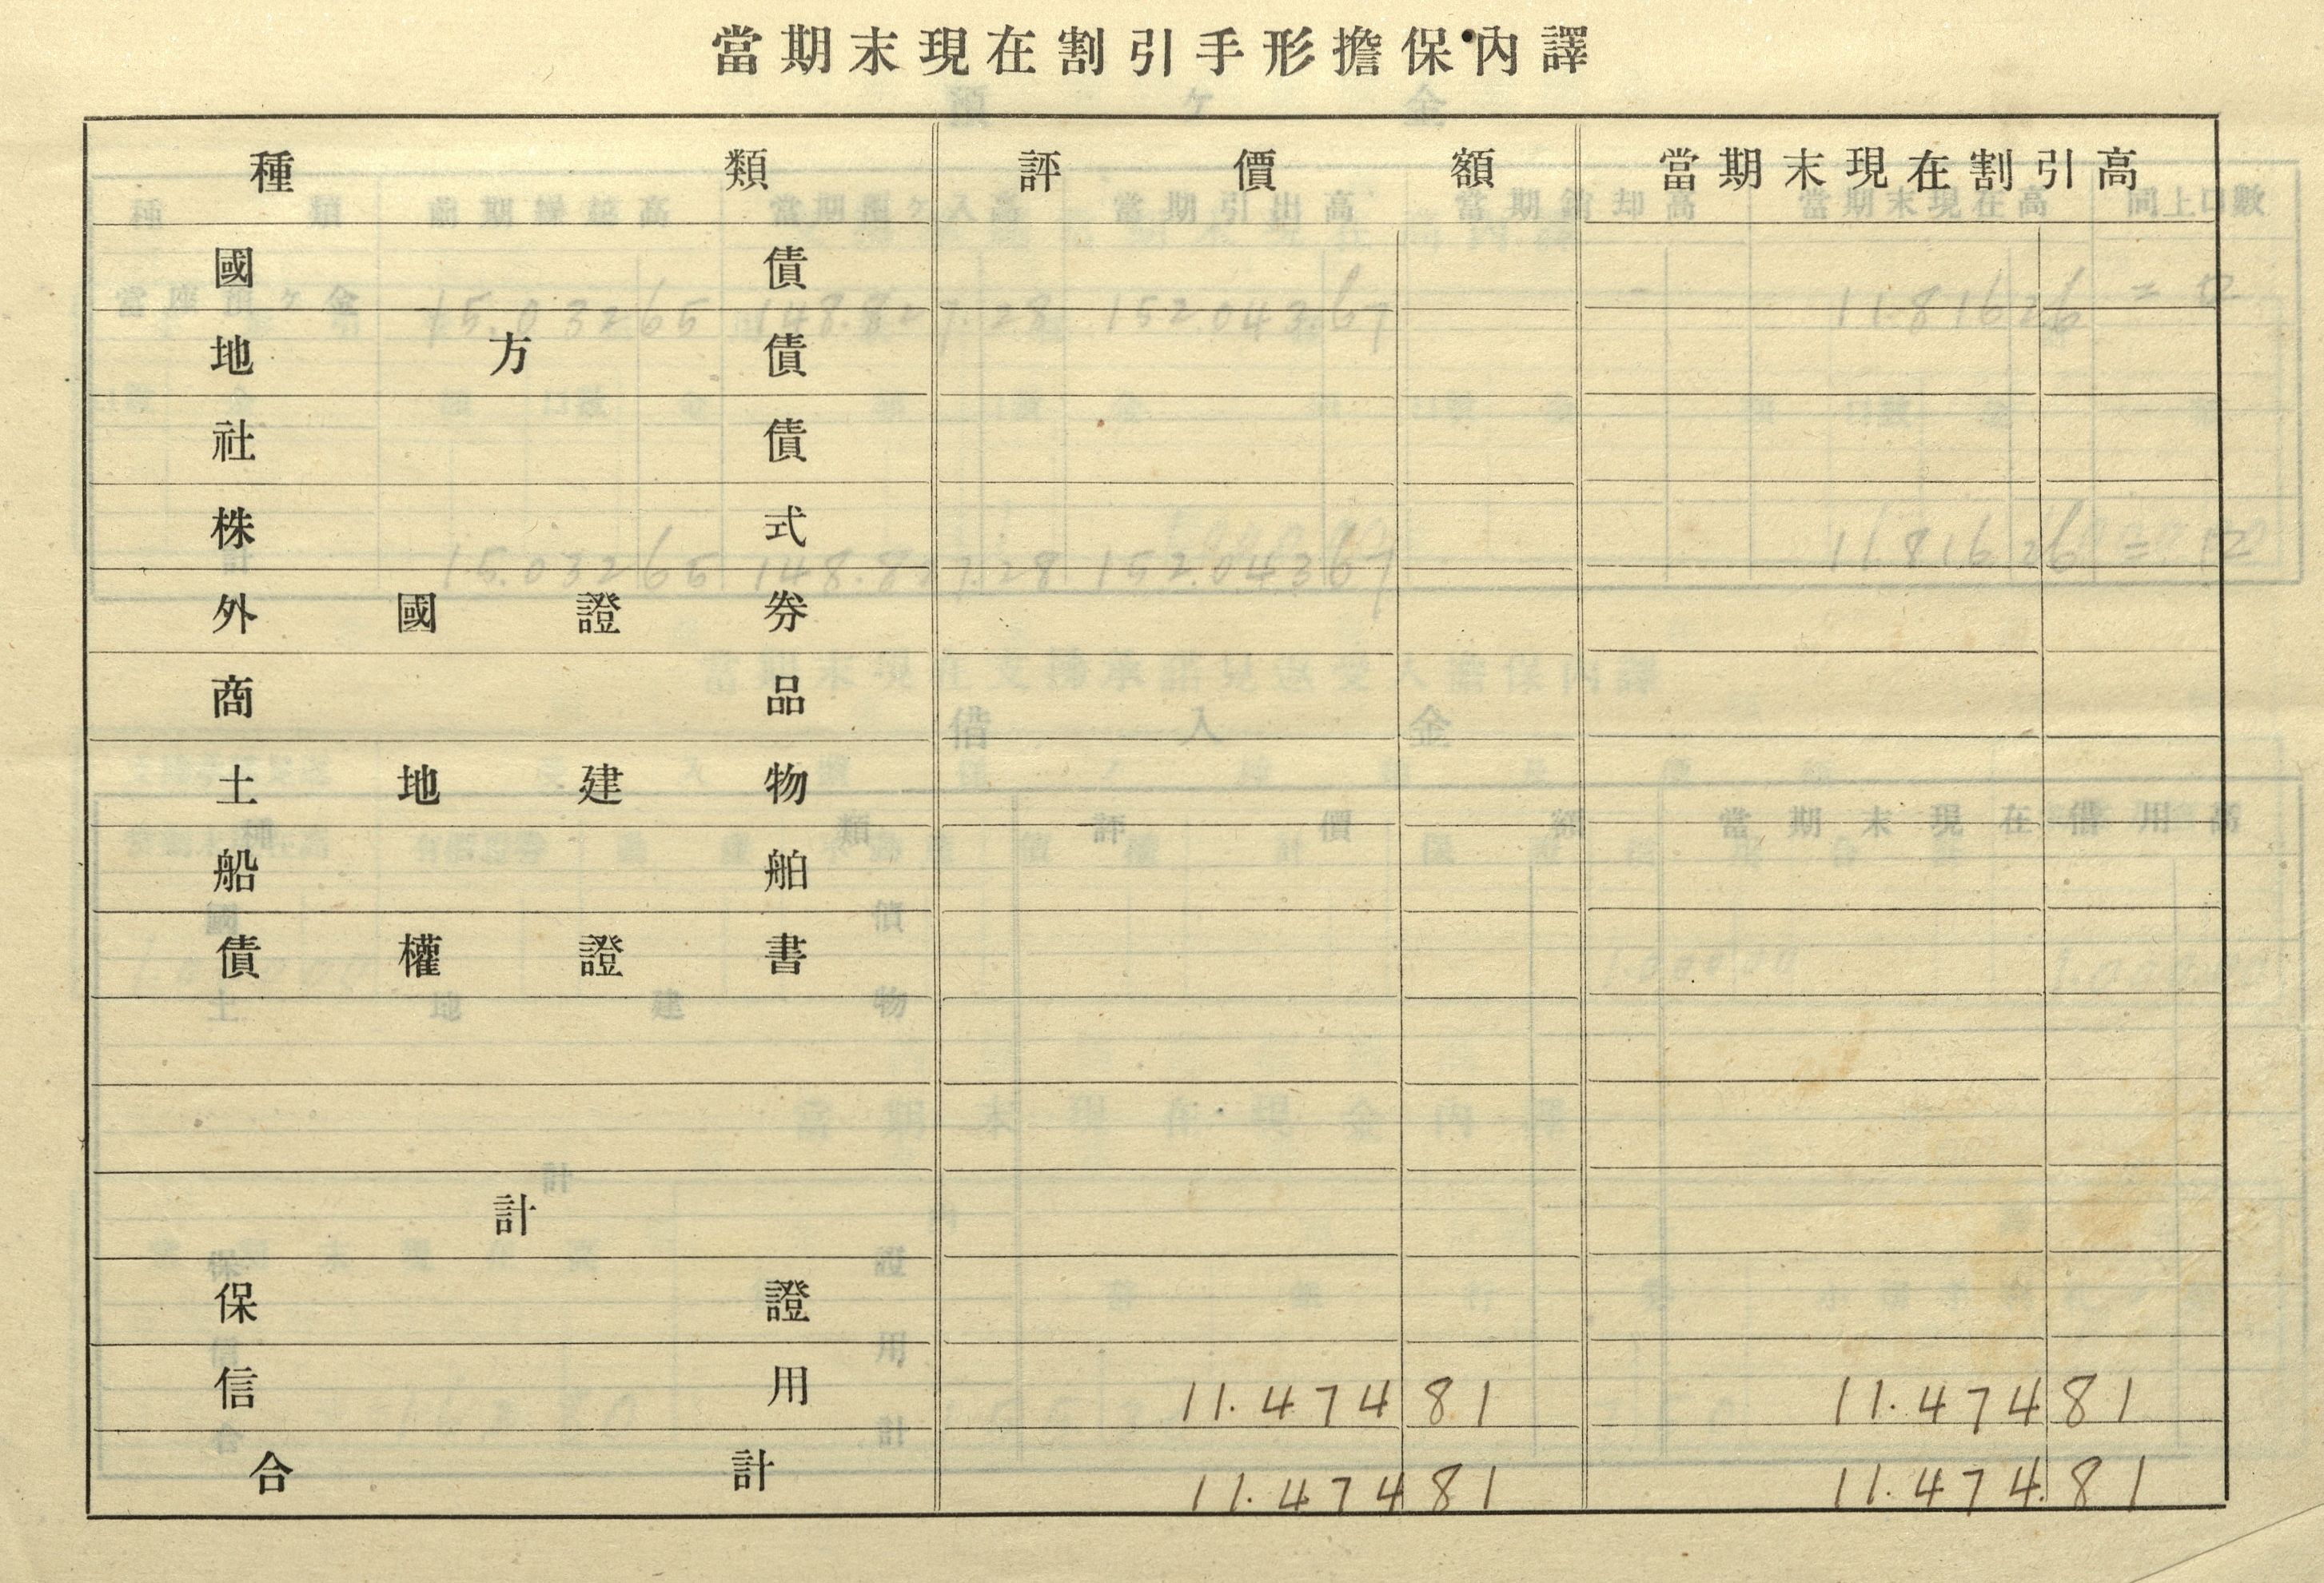 當期末現在割引手形擔保內譯
種類 評價額 當期末現在割引高
國債
地方債
社債
株式
外國證券
商品
土地建物
船舶
債權證書
計
保證
信用 11.474 81 11.474 81
合計 11.474 81 11.474.81